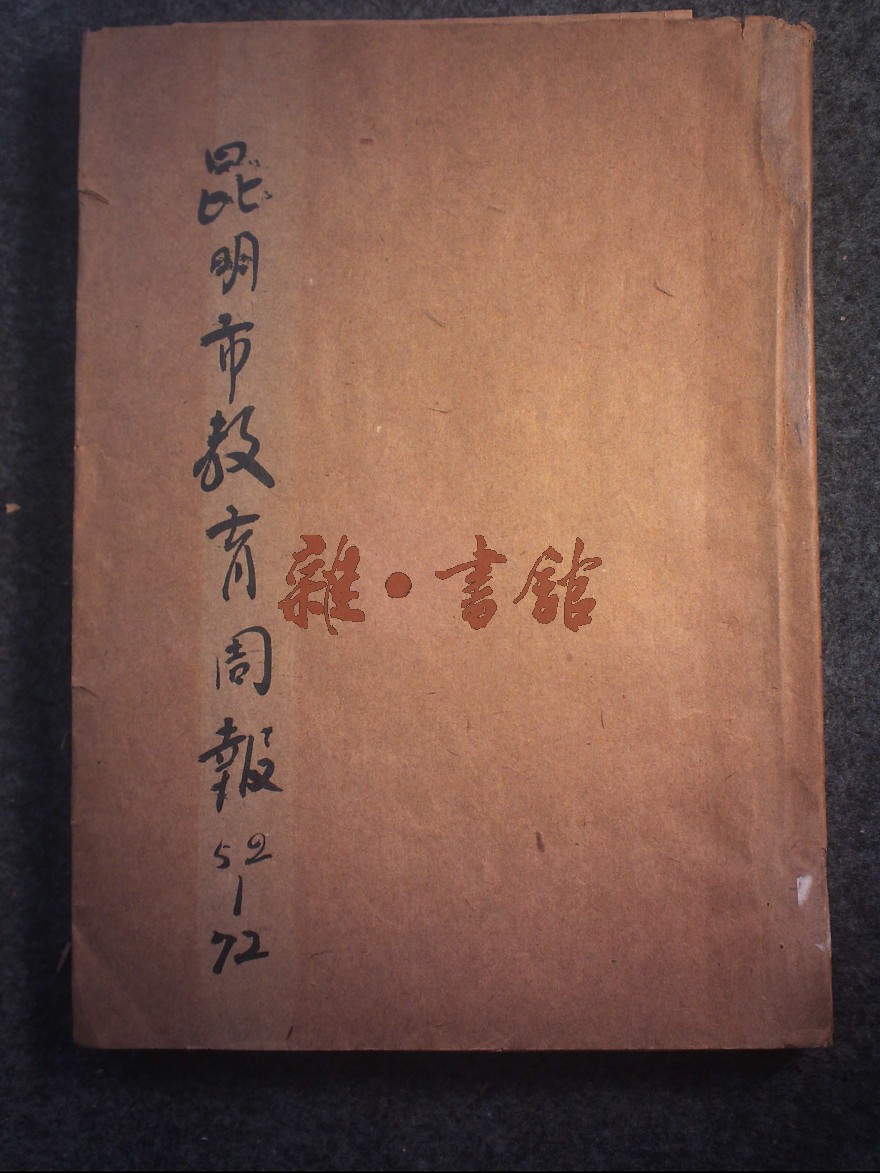 昆明市教育周報
52
|
72
雜·書館